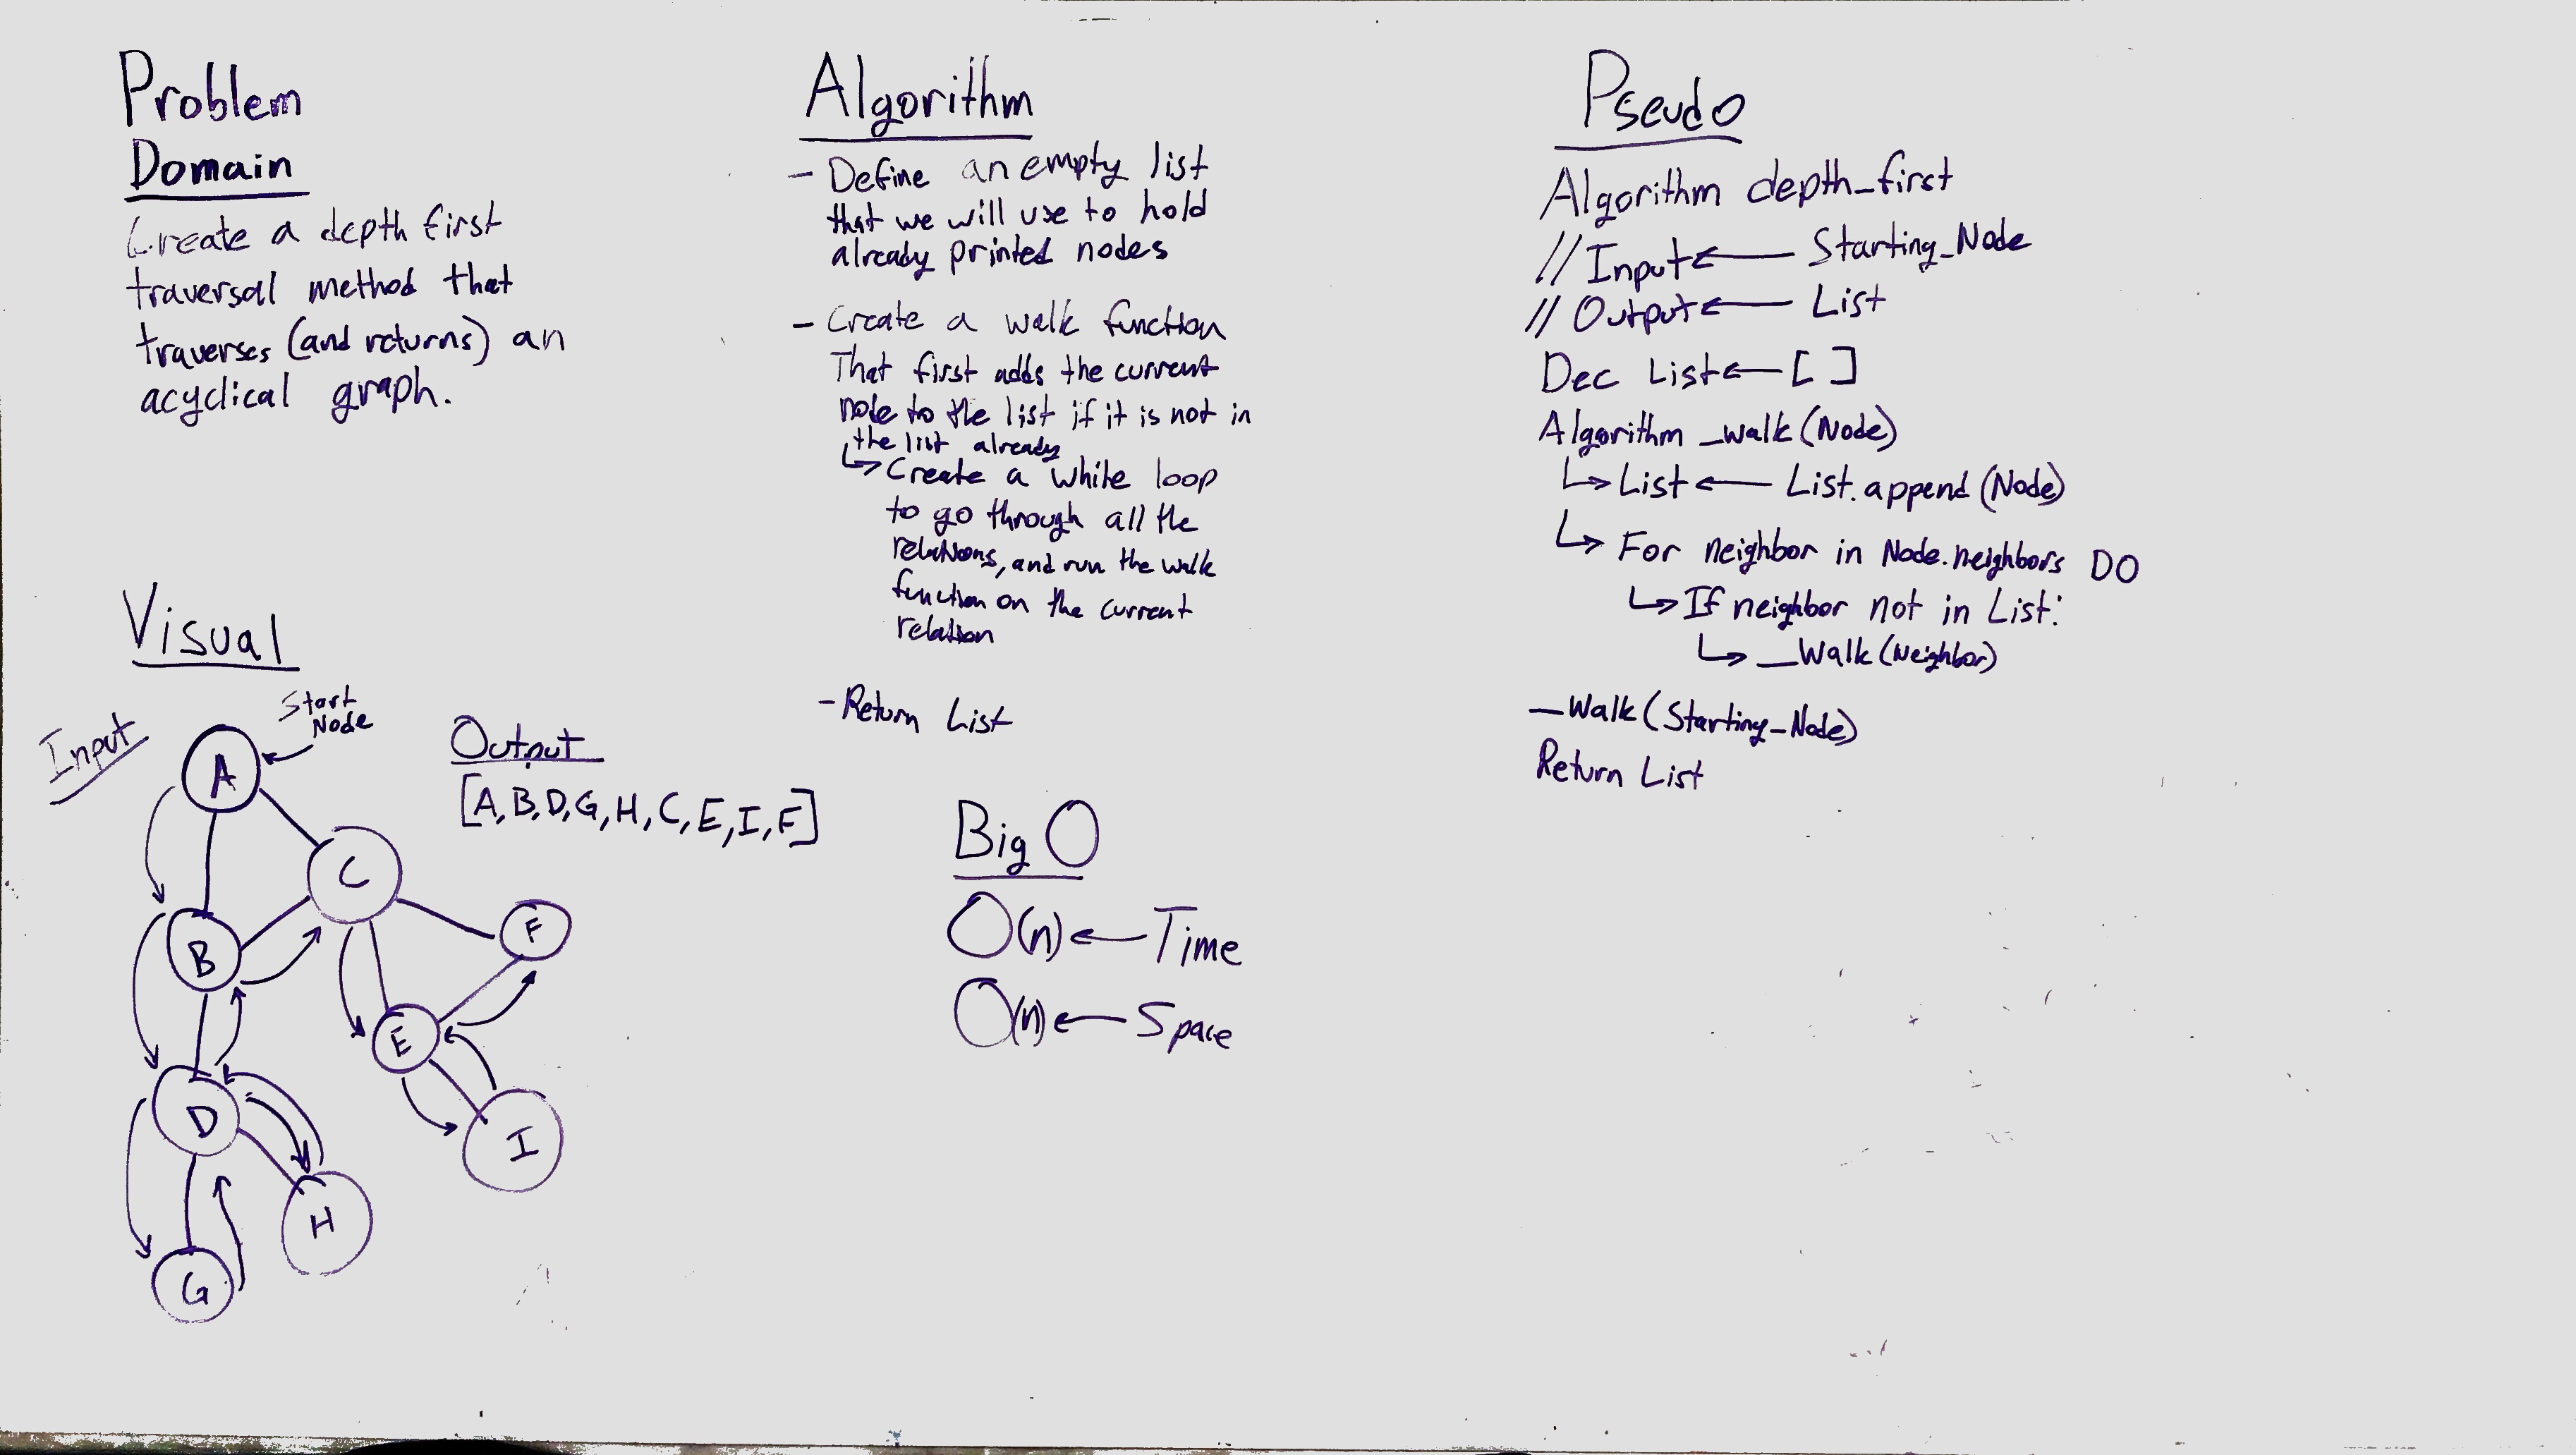 Problem
Domain
Create a depth first
traversal method that
traverses (and returns) an
acyclical graph.
Visual
Input
Start
Node
A
C
B
F
E
D
I
H
G
Output
[A, B, D, G, H, C, E, I, F]
Algorithm
- Define an empty list
that we will use to hold
already printed nodes
- Create a walk function
That first adds the current
node to the list if it is not in
the list already
↳ Create a while loop
to go through all the
relations, and run the walk
function on the current
relation
- Return List
Big O
O(n) ← Time
O(n) ← Space
Pseudo
Algorithm depth_first
// Input ← Starting_Node
// Output ← List
Dec List ← [ ]
Algorithm _walk (Node)
↳ List ← List.append (Node)
↳ For neighbor in Node.neighbors DO
↳ If neighbor not in List:
↳ _Walk (Neighbor)
_Walk (Starting_Node)
Return List